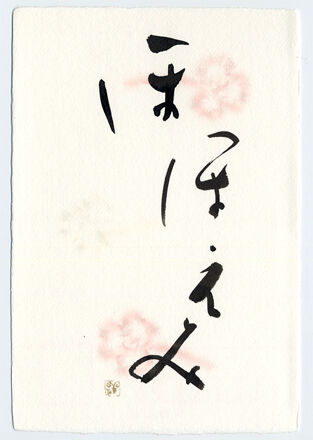 ほほえみ